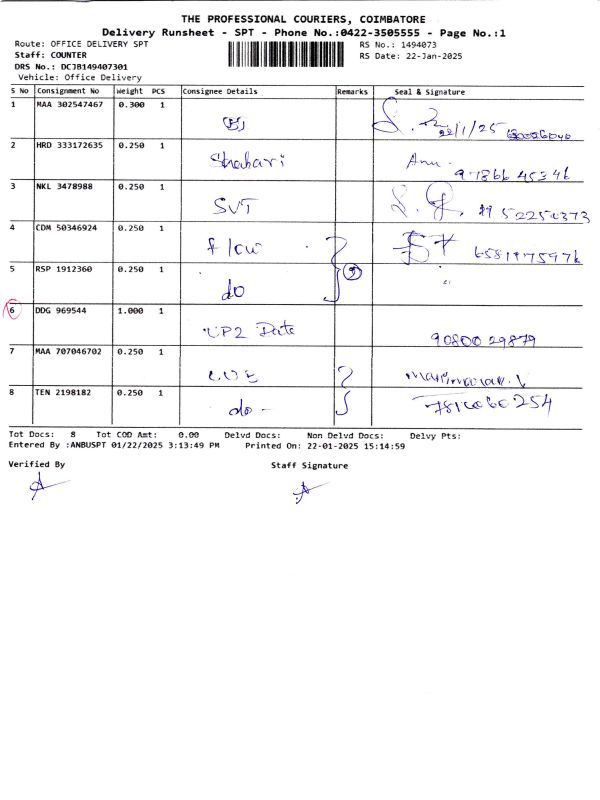 THE PROFESSIONAL COURIERS, COIMBATORE
Delivery Runsheet - SPT - Phone No.:0422-3505555 - Page No.:1
Route: OFFICE DELIVERY SPT RS No.: 1494073
Staff: COUNTER RS Date: 22-Jan-2025
DRS No.: DCJB149407301
Vehicle: Office Delivery
S No Consignment No Weight PCS Consignee Details Remarks Seal & Signature
1 MAA 302547467 0.300 1
22/1/25
2 HRD 333172635 0.250 1
Shabari Anu.
97866 45346
3 NKL 3478988 0.250 1
SVT 99 52250373
4 CDM 50346924 0.250 1
5 RSP 1912360 0.250 1
do
6 DDG 969544 1.000 1
UP2 Date 90800 29879
7 MAA 707046702 0.250 1
8 TEN 2198182 0.250 1
do -
Tot Docs: 8 Tot COD Amt: 0.00 Delvd Docs: Non Delvd Docs: Delvy Pts:
Entered By :ANBUSPT 01/22/2025 3:13:49 PM Printed On: 22-01-2025 15:14:59
Verified By Staff Signature